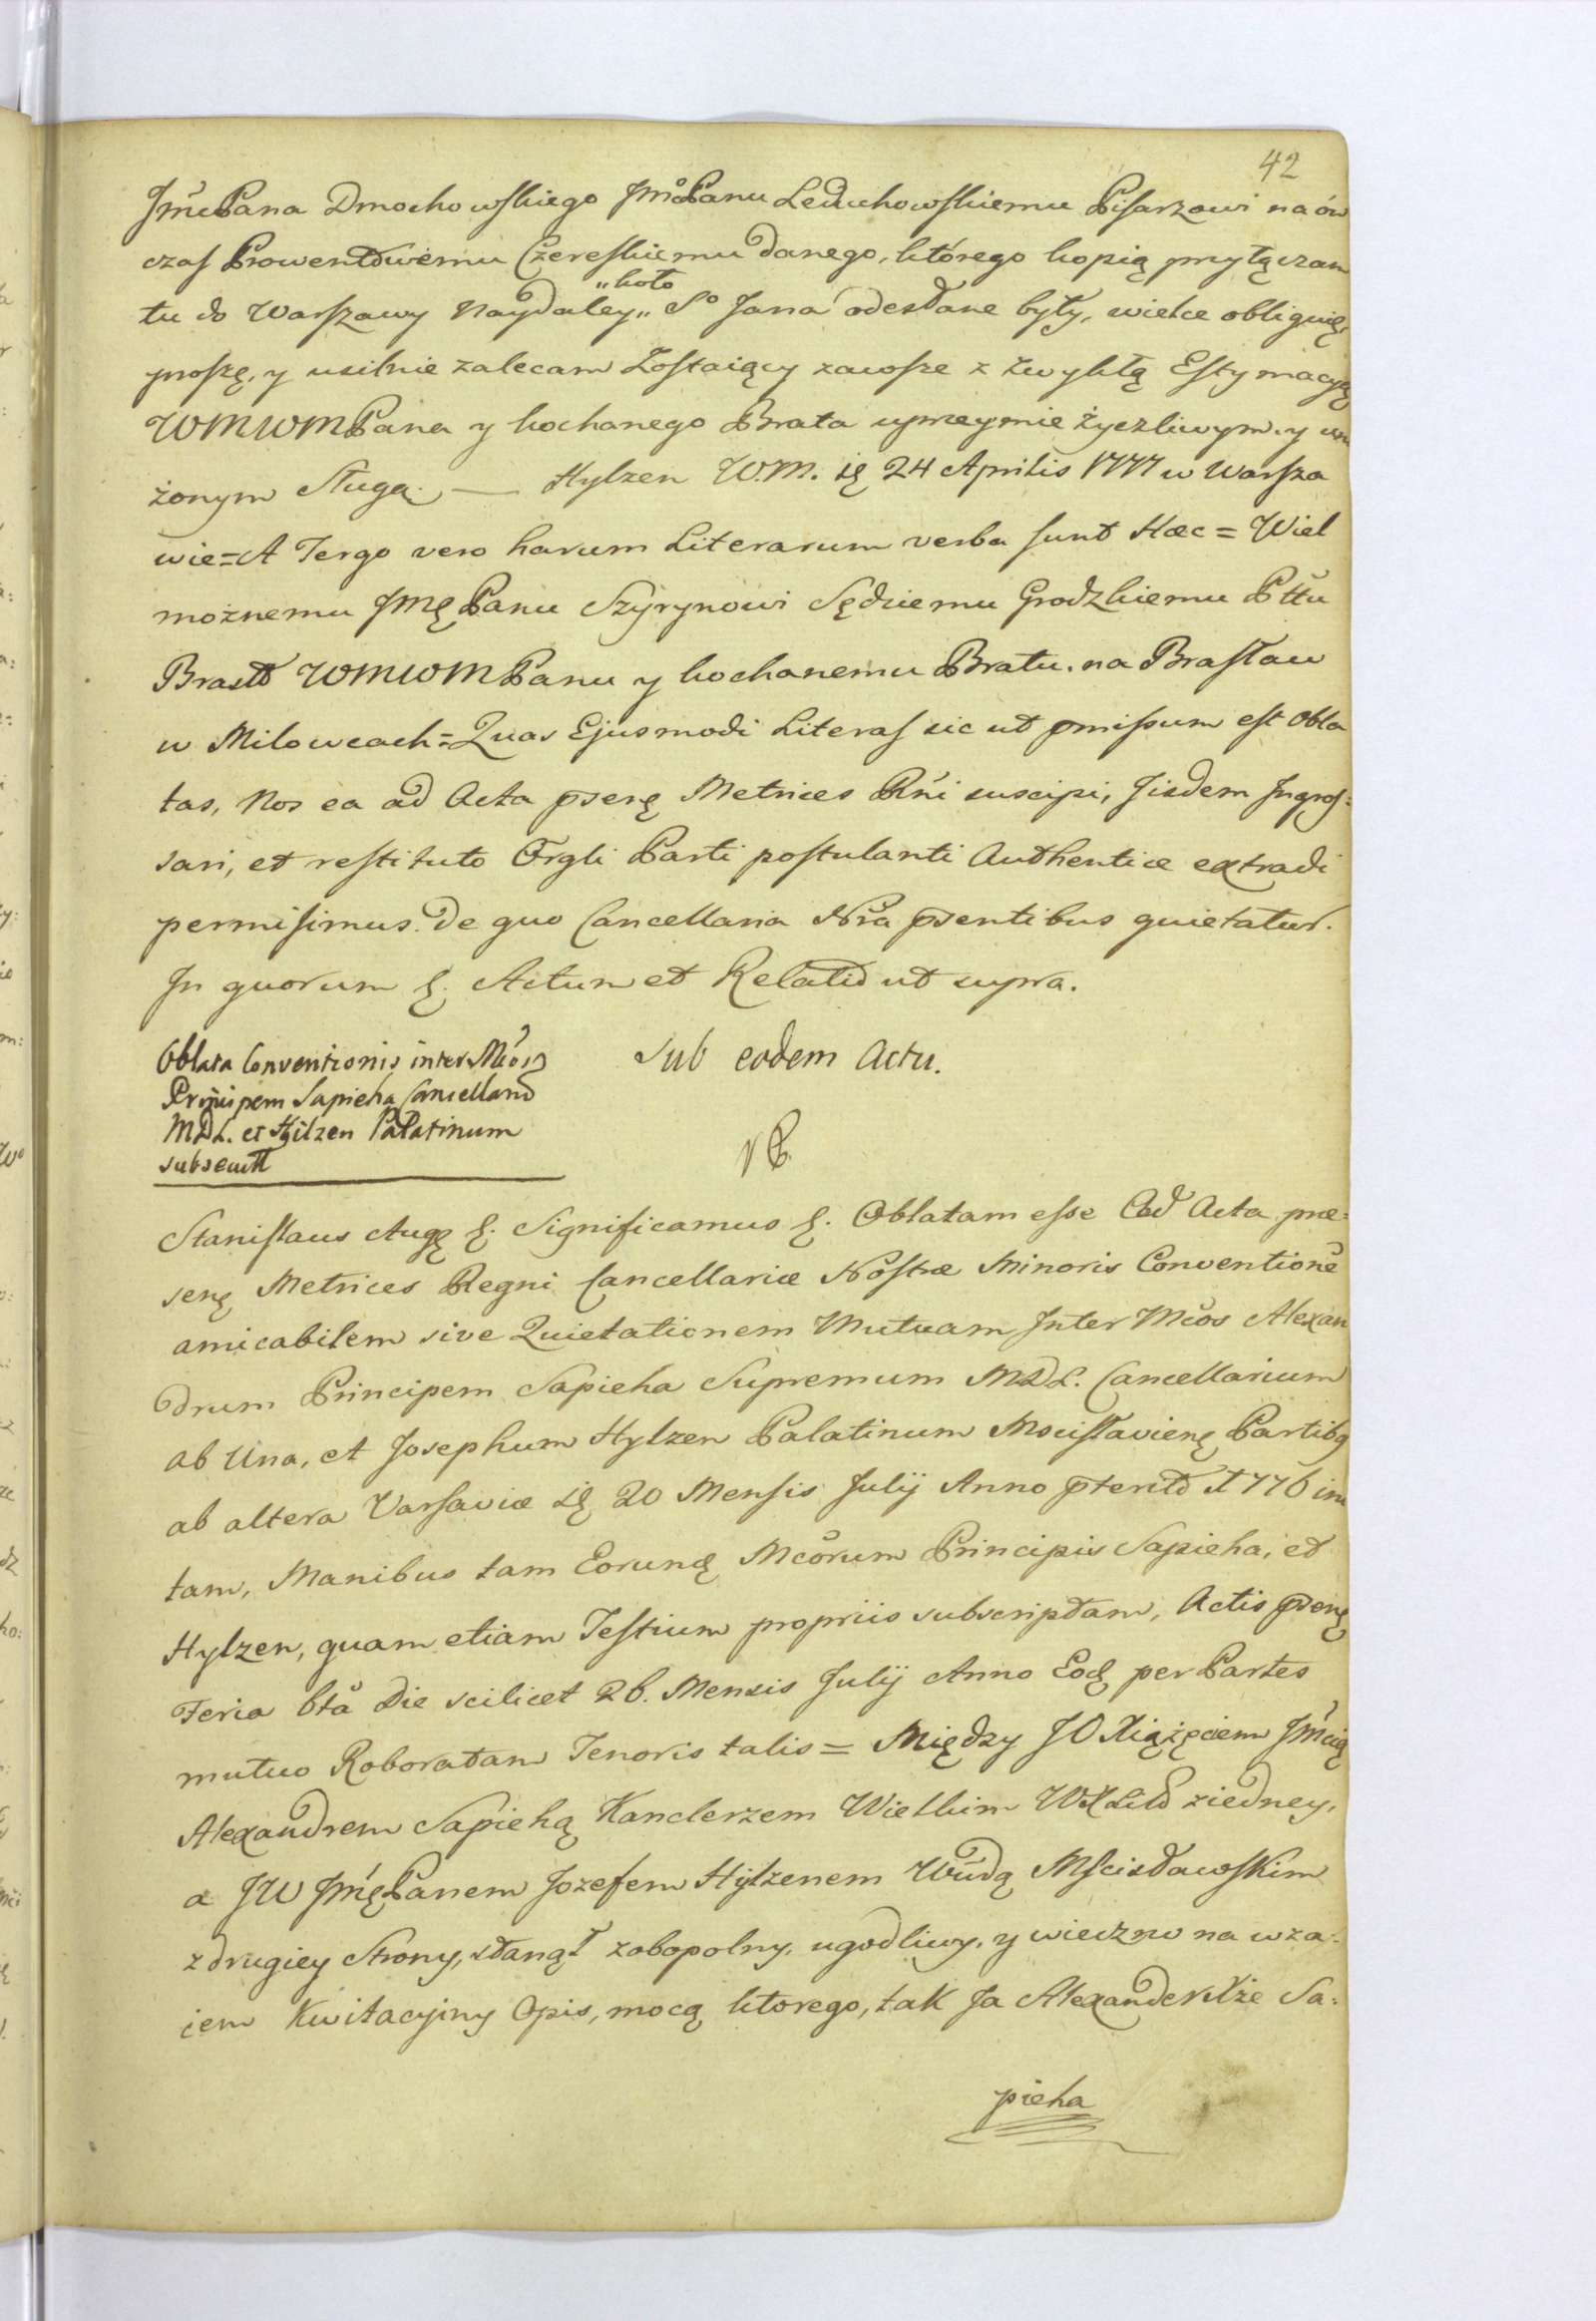 42
JmćPana Dmochowskiego JmćPanu Leduchowskiemu Pisarzowi na ów
czas Prowentowemu Czereskiemu danego, którego kopią przyłączam
„koło
tu do Warszawy naydaley „ So Jana odesłane były, wielce obliguię
proszę, y usilnie zalecam Zostaiący zawsze z zwykłą Estymacyą
WMWMPana y kochanego Brata uprzeymie życzliwym, y uni
żonym sługą. — Hylzen W.M. ię 24 Aprilis 1777 w Warsza
wie = A Tergo vero harum Literarum verba sunt Hæc = Wiel
możnemu JmęPanu Szyrynowi Sędziemu Grodzkiemu Pttu
Brasłł WMWMPanu y kochanemu Bratu. na Brasław
w Milowcach = Quas Ejusmodi Literas sic ut pmissum est obla
tas, Nos ea ad Acta psenę Metrices Rni suscipi, Jisdem Ingros=
sari, et restituto Orgli Parti postulanti Authentice extradi
permisimus. De quo Cancellaria Nra psentibus quietatur.
In quorum &. Actum et Relatio ut supra.
Oblata Conventionis inter Mcos
Principem Sapieha Cancellarium
MDL. et Hilzen Palatinum
subsequitt
Sub eodem Actu.
Stanislaus Augę &. Significamus &. Oblatam esse Ad Acta præ=
senę Metrices Regni Cancellariæ Nostræ Minoris Conventione
amicabilem sive Quietationem Mutuam Inter Mcos Alexan
drum Principem Sapieha Supremum MDL. Cancellarium
ab Una, et Josephum Hylzen Palatinum Mscislavienę Partibg
ab altera Varsaviæ ię 20 Mensis Julij Anno pterito 1776 ini
tam, Manibus tam Eorundę Mcorum Principis Sapieha, et
Hylzen, quam etiam Testium propriis subscriptam, Actis psenę
Feria 6ta Die scilicet 26. Mensis Julij Anno Eodę per Partes
mutuo Roboratam Tenoris talis = Między JO Xiążęciem Jmcią
Alexandrem Sapiehą Kanclerzem Wielkim WXLitt ziedney,
a JW JmęPanem Jozefem Hylzenem Wdą Mscisławskim
z drugiey Strony, stanął zobopolny, ugodliwy, y wieczno na wza=
iem Kwitacyiny Opis, mocą ktorego, tak Ja Alexander Xże Sa=
pieha